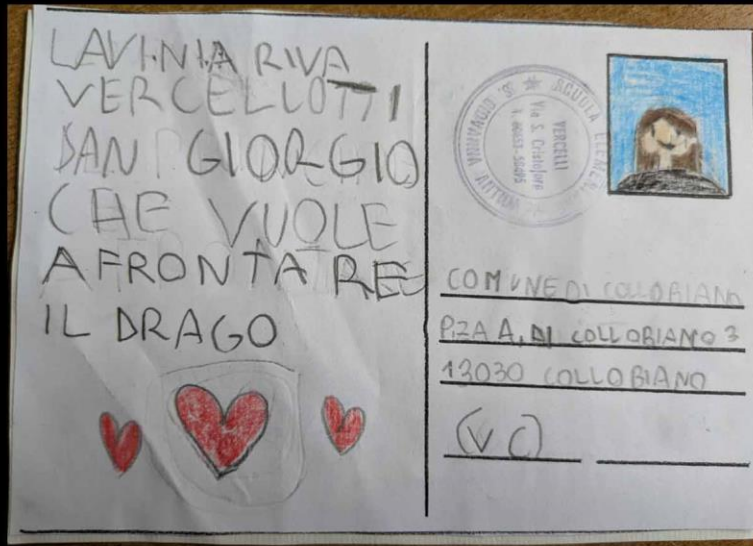 LAVINIA RIVA
VERCELLOTTI
SAN GIORGIO
CHE VUOLE
AFRONTARE
IL DRAGO
VERCELLI
Via S. Cristoforo
COMUNE DI COLLOBIANO
P.ZA A. DI COLLOBIANO 3
13030 COLLOBIANO
(VC)